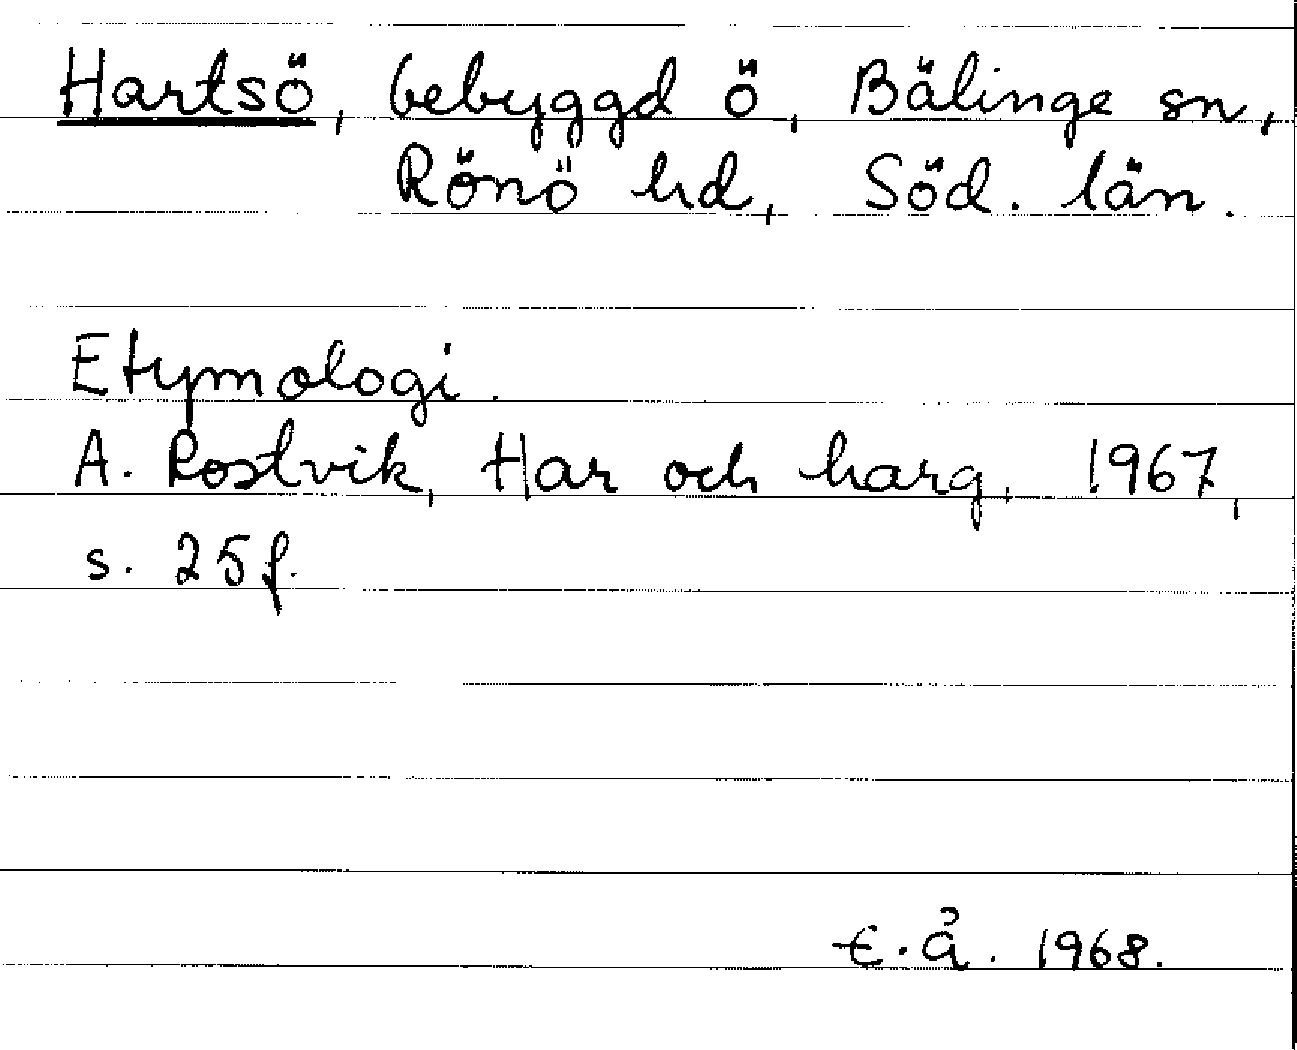 Hartsö, bebyggd ö, Bälinge sn,
Rönö hd, Söd. län.
Etymologi.
A. Rostvik, Har och harg, 1967,
s. 25 f.
E. Å. 1968.